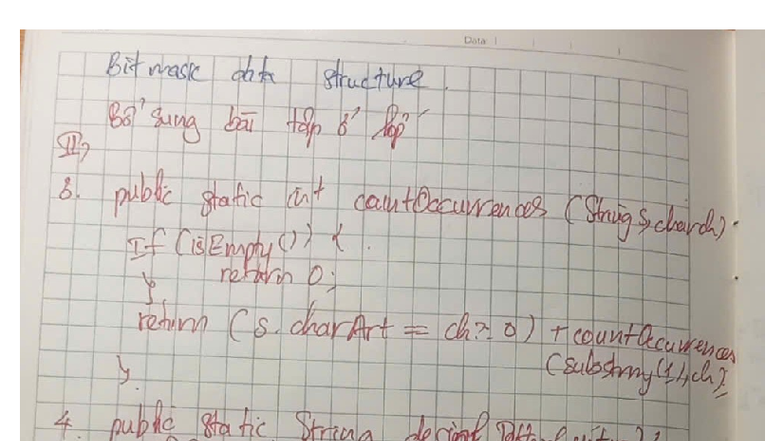 Data
Bitmask data structure.
Bổ sung bài tập ở lớp
II,
3. public static int countOccurrences (String s, char ch)
If (isEmpty()) {
return 0;
}
return (s. charArt = ch ? 0) + countOccurrences
(substring(1), ch);
}
4. public static String decimal